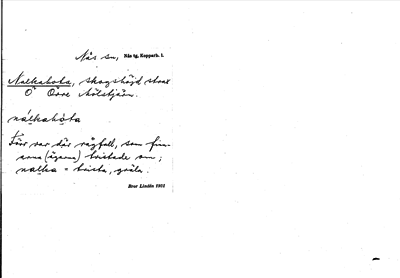 Nås sn, Nås tg, Kopparb. l.
Nalkahota, skogshöjd strax
O Övre Mölstjärn.
nalkahota
Förr var där rågfall, som fin-
arna (ägarna) tvistade om;
nalka = tvista, gräla.
Bror Lindén 1931